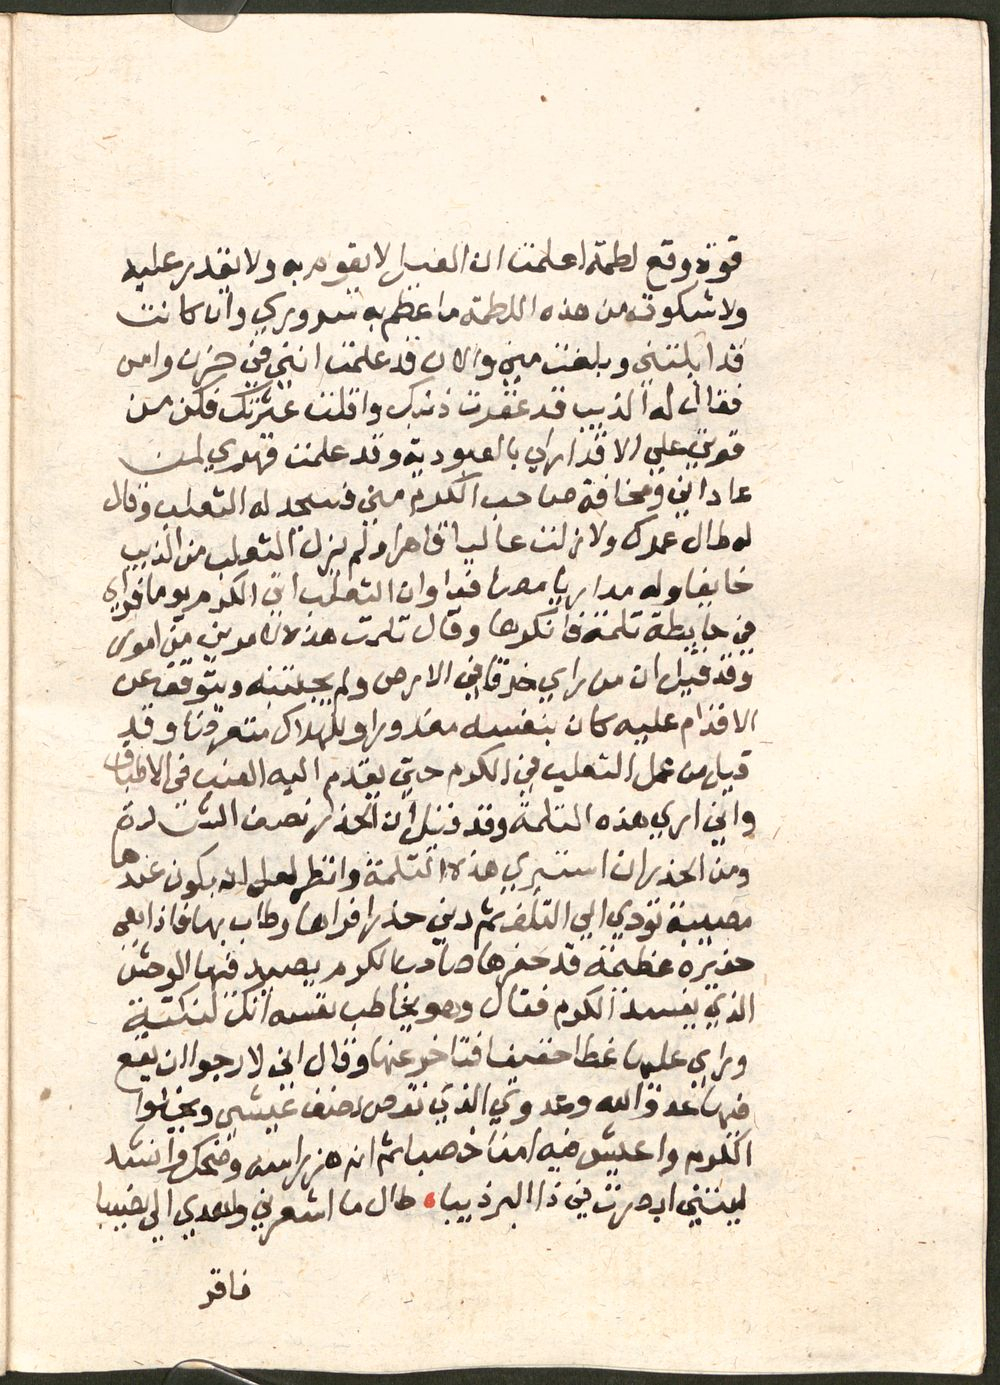 قوة وقع لطمة اعلمت ان الفيل لا يقوم به ولا يقدر عليه
ولا شكوت من هذه اللطمة ما اعظم به سروري وان كانت
قد ابلتني وبلغت مني والان قد علمت انني في حزن وامن
فقال له الذيب قد غفرت ذنبك واقلت عثرتك فكن من
قوتي علي الاقرار لي بالعبودية وقد علمت قهري لمن
عاداني ومخافة صاحب الكرم مني فسجد له الثعلب وقال
له طال عمرك ولا زلت عاليا قاهرا ولم يزل الثعلب من الذيب
خايفا وله مداريا مصانعا وان الثعلب اتي الكرم يوما فراي
في حايطة تلمة فانكرها وقال تلمت هذه لامر من امور
وقد قيل ان من راي خرقا في الارض ولم يجتنبه ويتوقف عن
الاقدام عليه كان بنفسه مغدورا وللهلاك متعرضا وقد
قيل من عمل الثعلب في الكرم حتي يقدم اليه العنب في الاطباق
واني اري هذه التلمة وقد قيل ان الحذر نصف الشطارة
ومن الحذر ان استبري هذه التلمة وانظر لعل ان يكون عندها
مصيبة تودي الي التلف ثم دني حذرا فراها وطاب بها فاذا هي
حفيرة عظيمة قد حفرها صاحب الكرم يصيد فيها الوحش
الذي يفسد الكرم فقال وهو يخاطب نفسه انك لنكتة
وراي عليها غطا خفيفا فتاخر عنها وقال اني لارجوا ان يقع
فيها عدو الله وعدوي الذي نغص نصف عيشي ويخلوا
الكرم واعيش فيه امنا خصبا ثم انه هز راسه وضحك وانشد
ليتني ابصرت في ذا البر ذيبا ، طال ما اشعرني واهدي الي نحيبا
فاقر